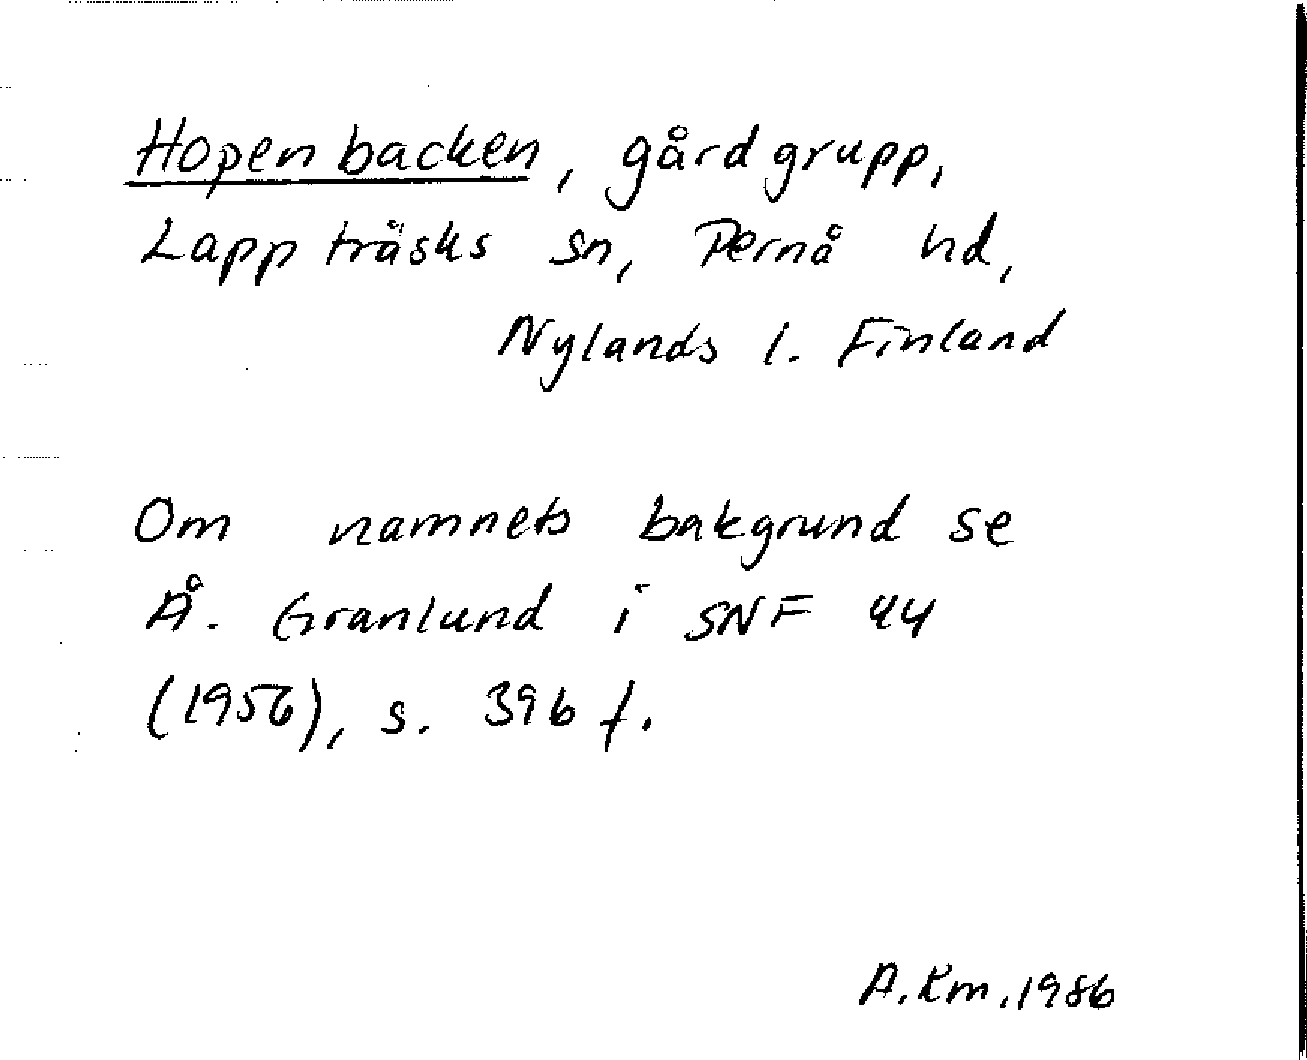 Hopenbacken, gårdgrupp,
Lappträsks sn, Pernå hd,
Nylands l. Finland
Om namnets bakgrund se
Å. Granlund i SNF 44
(1956), s. 396 f.
A.Km.,1986